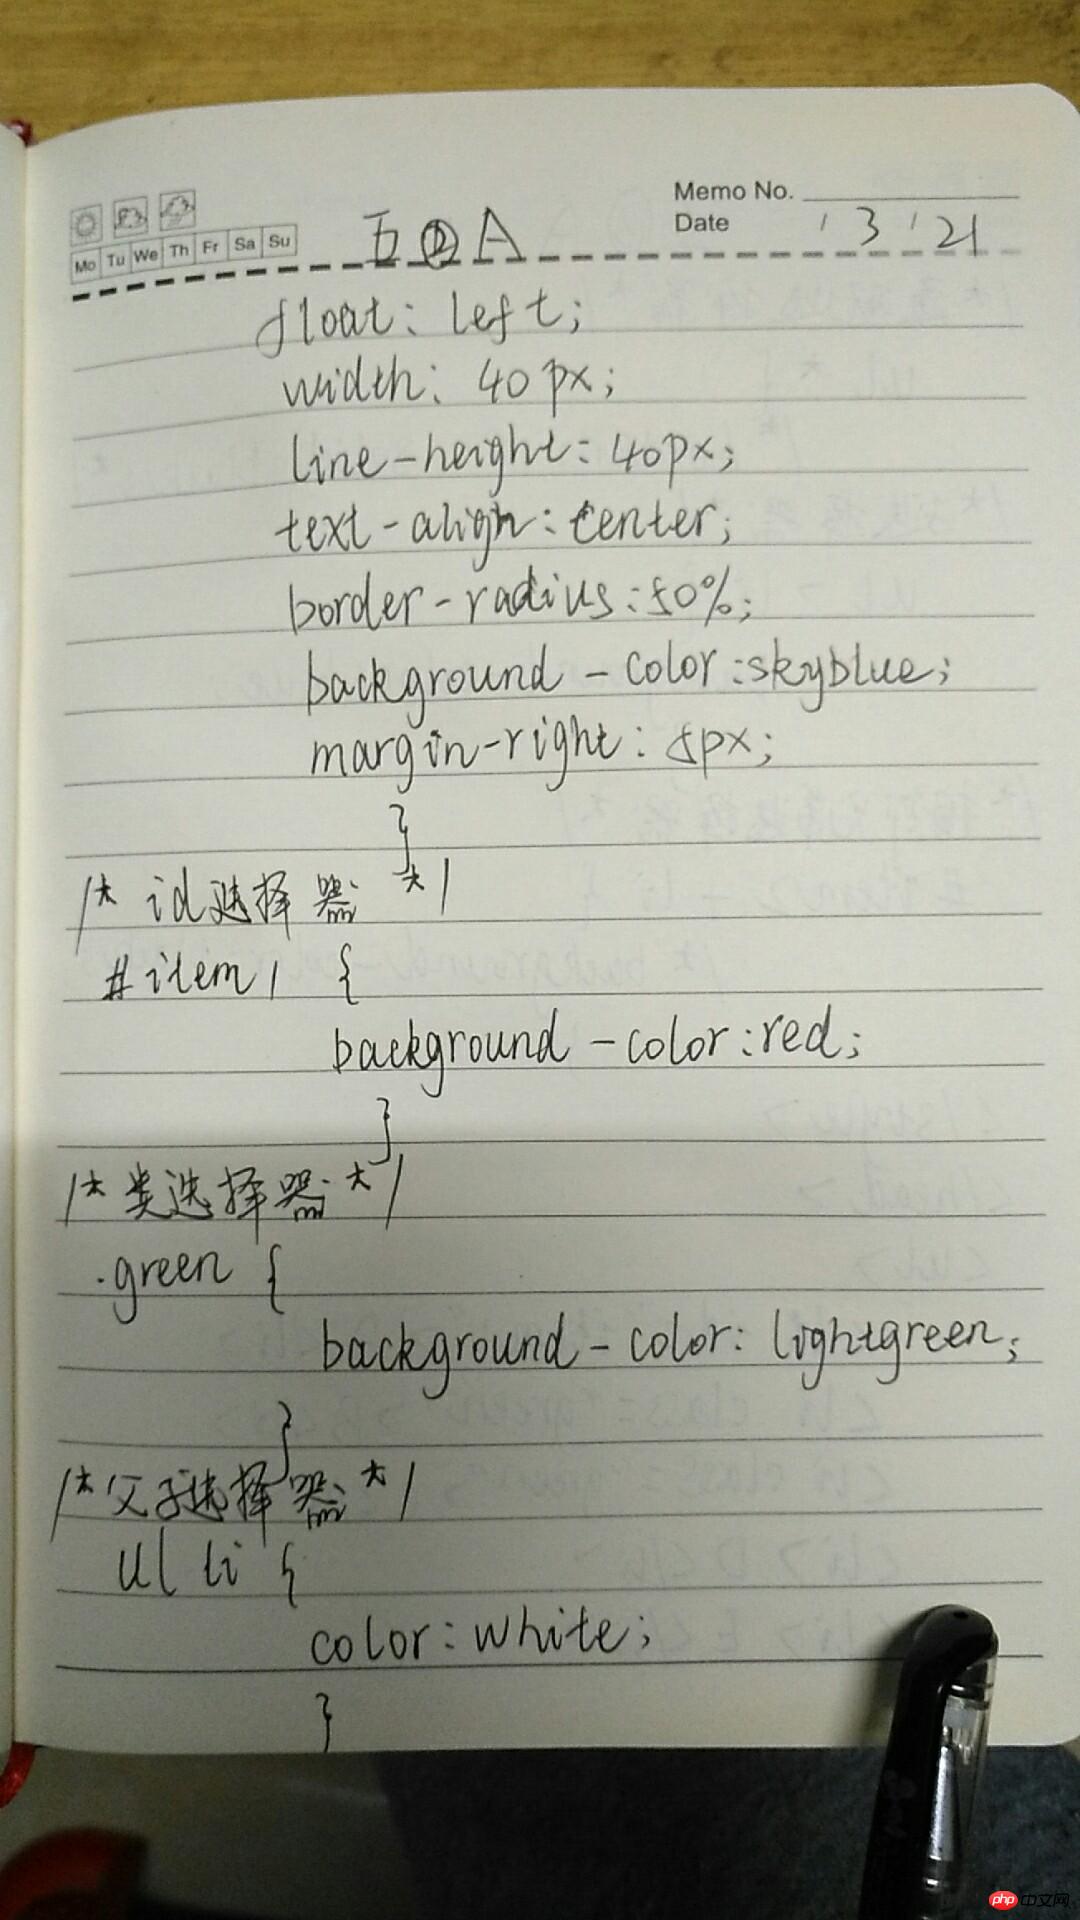 Memo No.
Date 3 21
Mo Tu We Th Fr Sa Su
A
float: left;
width: 40px;
line-height: 40px;
text-align: center;
border-radius: 50%;
background-color: skyblue;
margin-right: 5px;
}
/* id选择器 */
#item1 {
background-color: red;
}
/* 类选择器 */
.green {
background-color: lightgreen;
}
/* 父子选择器 */
ul li {
color: white;
}
php中文网